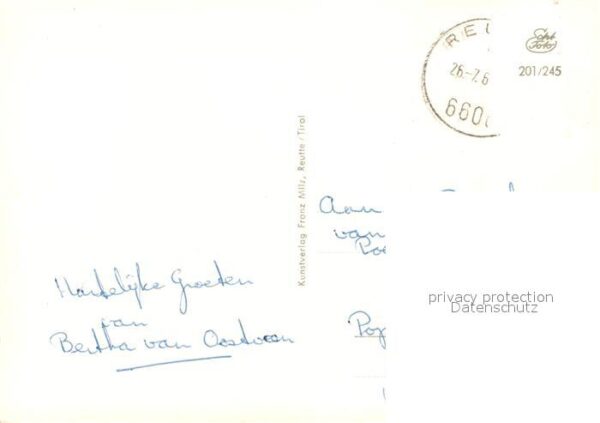 REU
26.-7.6
6600
Echt
Foto
201/245
Kunstverlag Franz Milz, Reutte/Tirol
Aan
van
Hartelijke Groeten
van
Bertha van Oostveen
privacy protection
Datenschutz